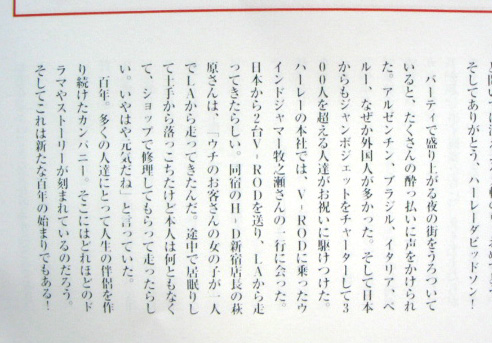 そしてありがとう、ハーレーダビッドソン！
パーティで盛り上がる夜の街をうろついて
いると、たくさんの酔っ払いに声をかけられ
た。アルゼンチン、ブラジル、イタリア、ペ
ルー、なぜか外国人が多かった。そして日本
からもジャンボジェットをチャーターして3
00人を超える人達がお祝いに駆けつけた。
ハーレーの本社では、V-RODに乗ったウ
インドジャマー牧之瀬さんの一行に会った。
日本から2台V-RODを送り、LAから走
ってきたらしい。同宿のH-D新宿店長の萩
原さんは、「ウチのお客さんの女の子が一人
でLAから走ってきたんだ。途中で居眠りし
て土手から落っこちたけど本人は何ともなく
て、ショップで修理してもらって走ったらし
い。いやはや元気だね」と言っていた。
百年。多くの人達にとって人生の伴侶を作
り続けたカンパニー。そこにはどれほどのド
ラマやストーリーが刻まれているのだろう。
そしてこれは新たな百年の始まりでもある！